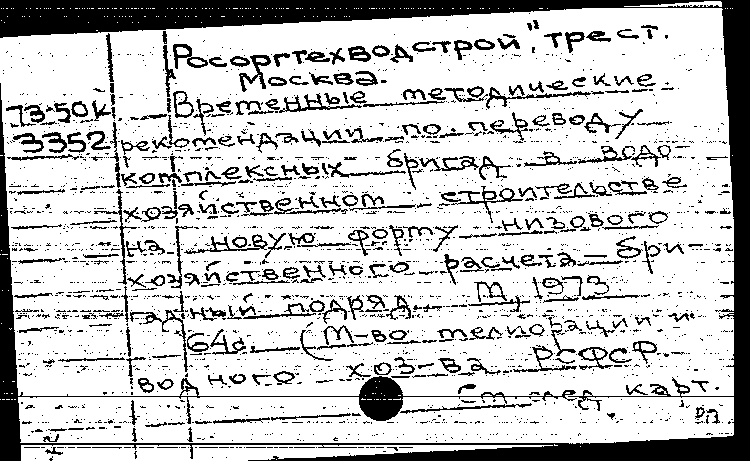 "Росоргтехводстрой", трест.
Москва.
73-50к Временные методические
3352 рекомендации по переводу
комплексных бригад в водо-
хозяйственном строительстве
на новую форму низового
хозяйственного расчета – бри-
гадный подряд. М., 1973
64с. (М-во мелиорации и
водного хоз-ва РСФСР.
См. след. карт.